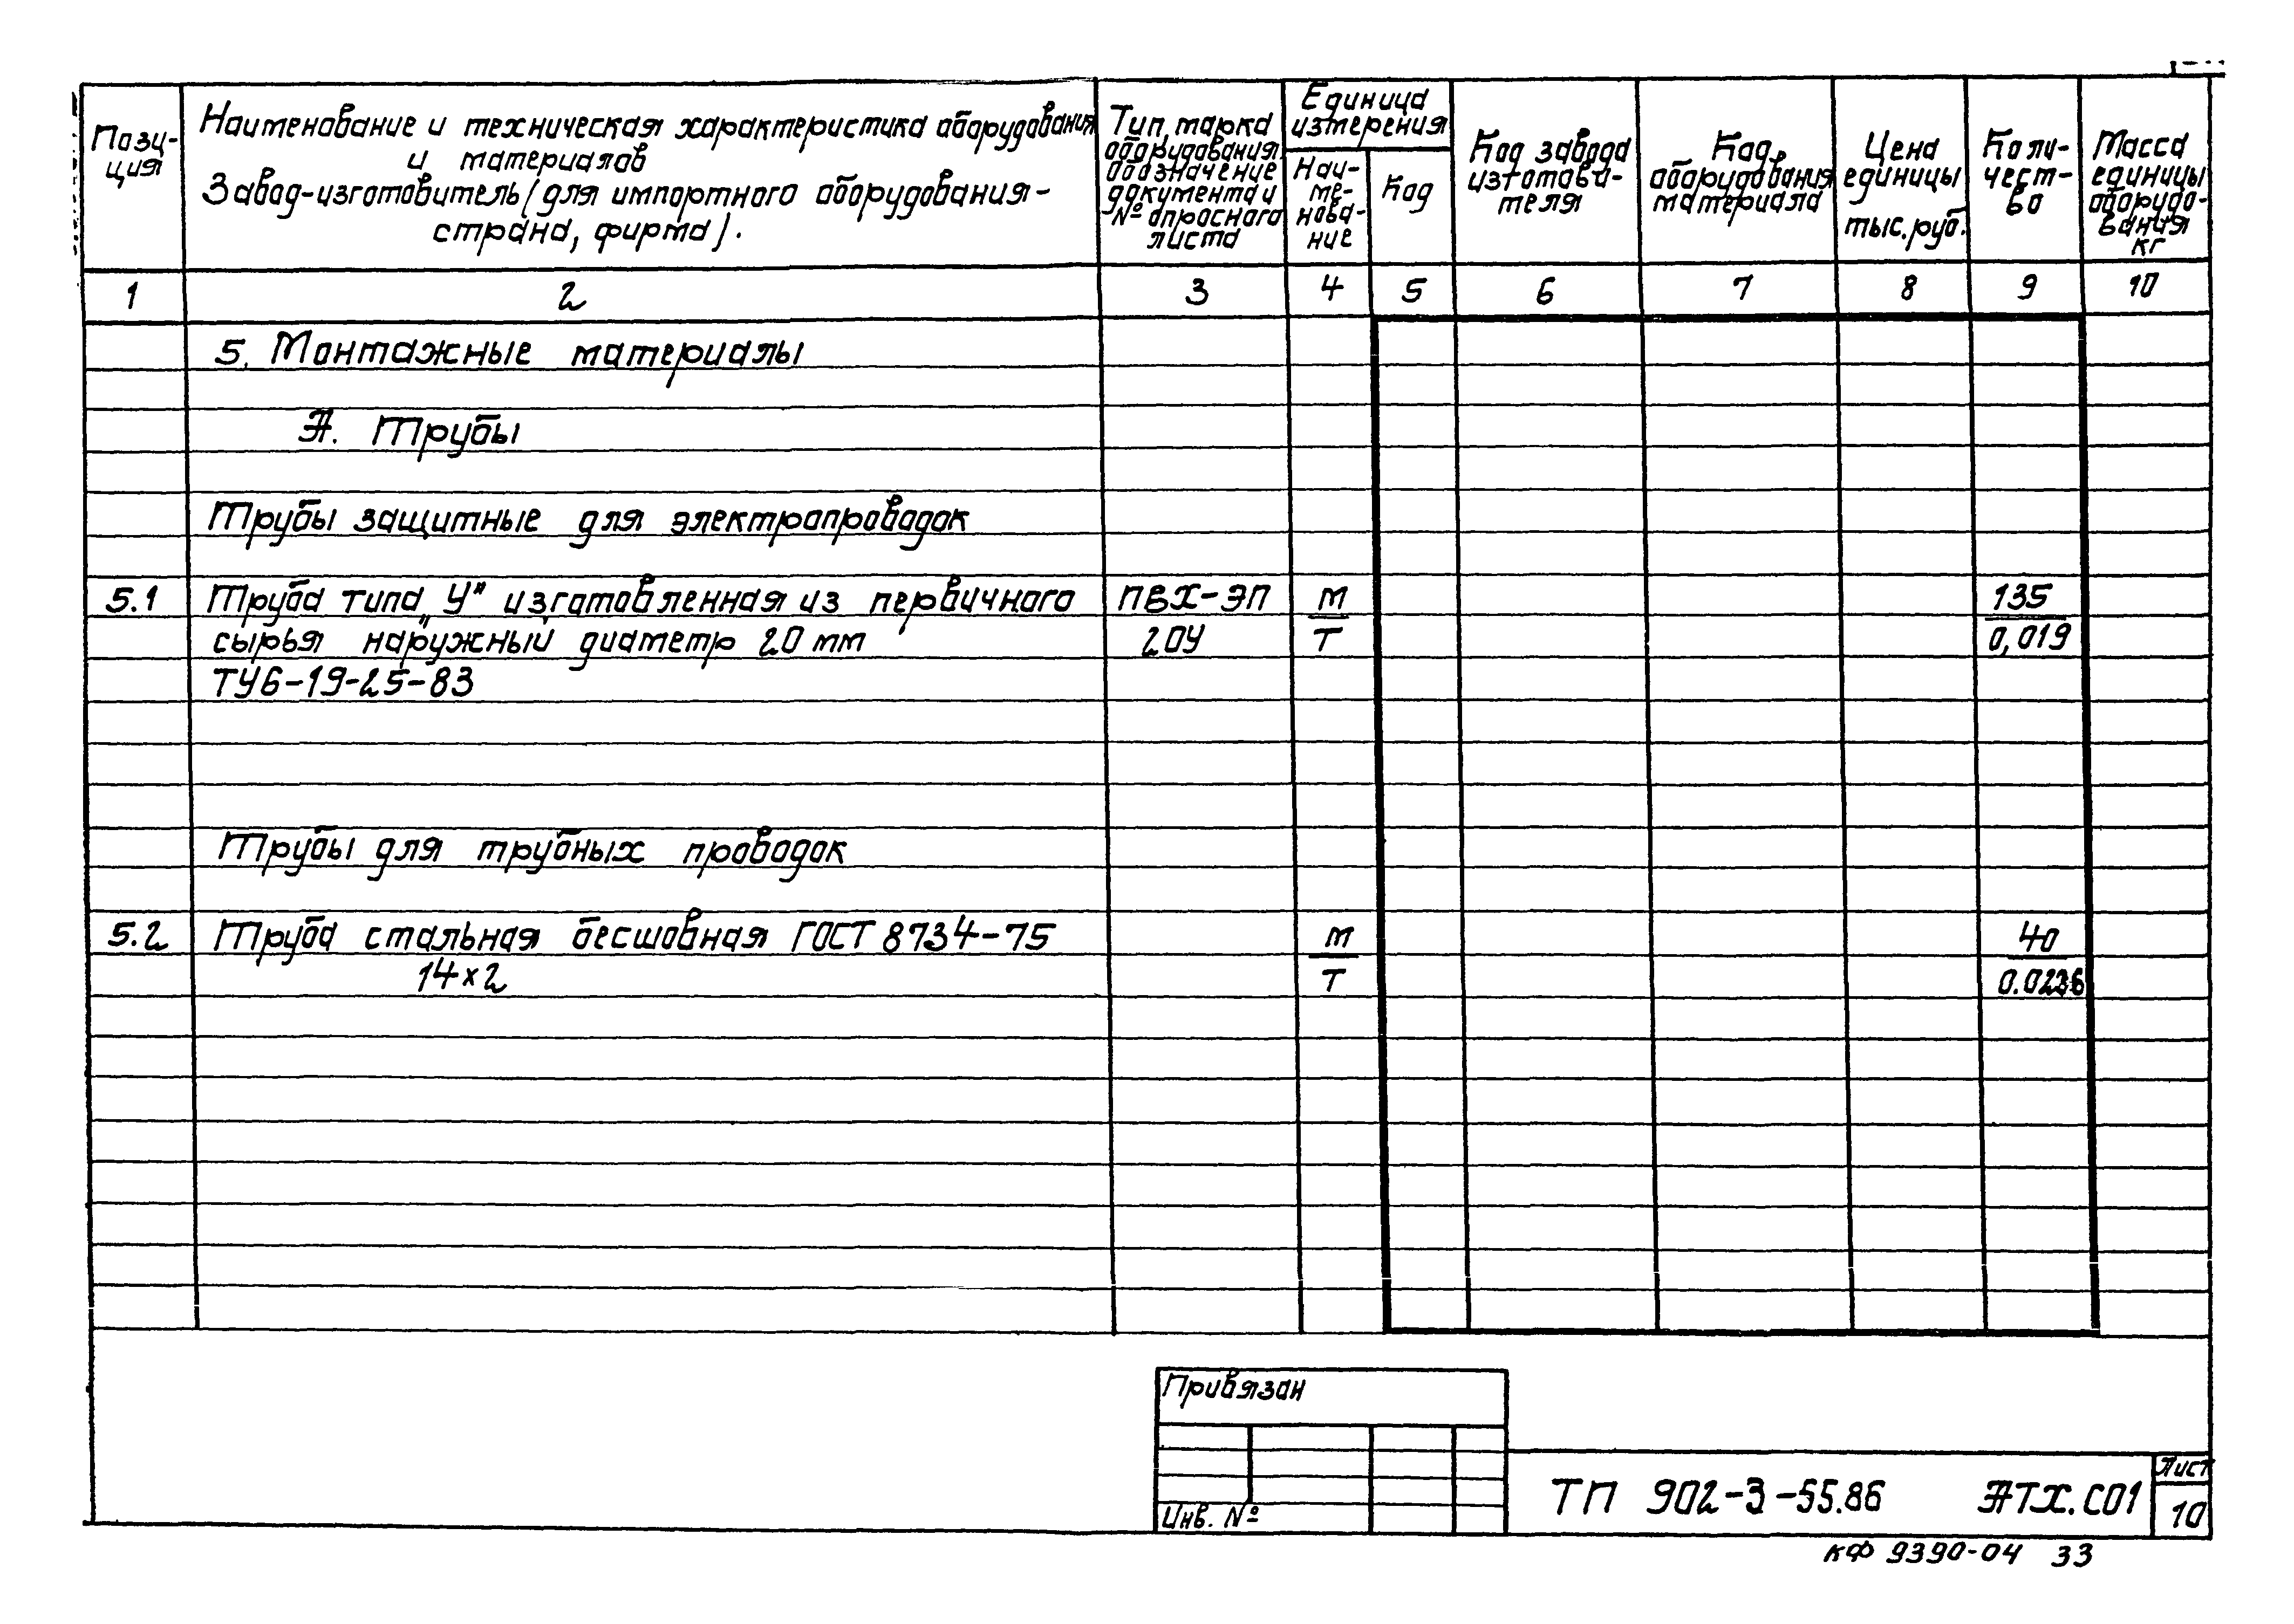 Пози-
ция
Наименование и техническая характеристика оборудования
и материалов
Завод-изготовитель (для импортного оборудования-
страна, фирма).
Тип, марка
оборудования.
обозначение
документа и
№ опросного
листа
Единица
измерения
Наи-
ме-
нова-
ние
Код
Код завода
изготови-
теля
Код
оборудования
материала
Цена
единицы
тыс. руб.
Коли-
чест-
во
Масса
единицы
оборудо-
вания
кг
1 2 3 4 5 6 7 8 9 10
5. Монтажные материалы
А. Трубы
Трубы защитные для электропроводок
5.1 Труба типа „У" изготовленная из первичного ПВХ-ЭП м 135
сырья наружный диаметр 20 мм 20У т 0,019
ТУ6-19-25-83
Трубы для трубных проводок
5.2 Труба стальная бесшовная ГОСТ 8734-75 м 40
14×2 т 0.0236
Привязан
Инв. №
ТП 902-3-55.86 АТХ.СО1
Лист
10
КФ 9390-04 33